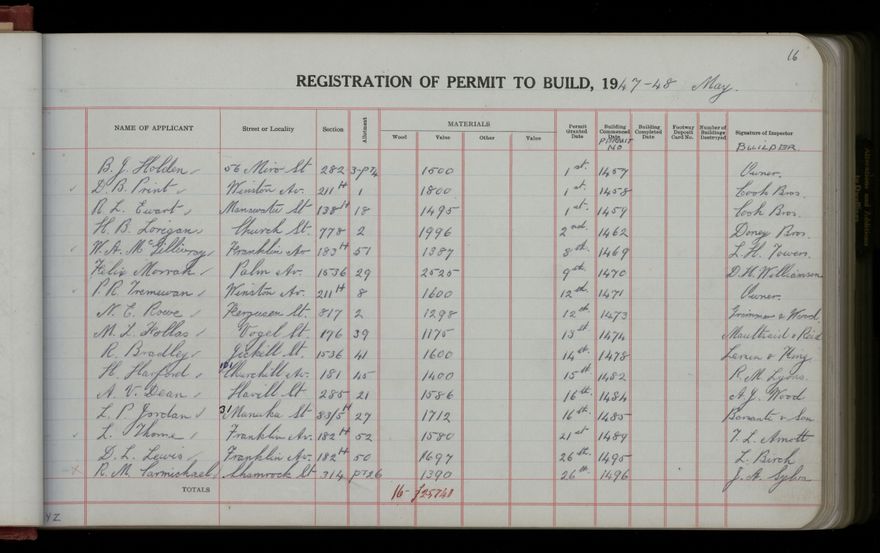 16
REGISTRATION OF PERMIT TO BUILD, 1947-48 May.
NAME OF APPLICANT Street or Locality Section Allotment MATERIALS Wood Value Other Value Permit Granted Date Building Commenced Date Building Completed Date Footway Deposit Card No. Number of Buildings Destroyed Signature of Inspector
PERMIT NO BUILDER.
B. J. Holden 56 Miro St 282 3-PT4 1500 1st. 1457 Owner.
D. B. Print Winston Av. 211H 1 1800 1st. 1458 Cook Bros.
R. L. Ewart Manawatu St 138H 18 1495 1st. 1459 Cook Bros.
H. B. Lorigan Church St. 778 2 1996 2nd. 1462 Doney Bros.
W. A. McGillivray Franklin Av 183H 51 1387 8th. 1469 L. H. Towers.
Felix Morrah Palm Av. 1536 29 2525 9th. 1470 D. H. Williamson
P. R. Tremewan Winston Av. 211H 8 1600 12th. 1471 Owner.
N. C. Rowe Ferguson St. 817 2 1298 12th. 1473 & Wood.
M. L. Hollas Vogel St. 176 39 1175 13th. 1474 & Reid
R. Bradley Jickell St. 1536 41 1600 14th. 1478 & King
H. Harford Churchill Av. 181 45 1400 15th. 1482 R. M. Lyons.
A. V. Dean Havill St 285 21 1586 16th. 1484 A. J. Wood
L. P. Jordan 31 Manuka St 83/5H 27 1712 16th. 1485 & Son
L. Thorne Franklin Av. 182H 52 1580 21st 1489 T. L. Arnott
D. L. Lewis Franklin Av. 182H 50 1697 26th. 1495 L. Birch
R. M. Carmichael Shamrock St 314 PT26 1390 26th. 1496 J. A.
TOTALS 16- £25741
YZ
Alterations and Additions
to Dwellings